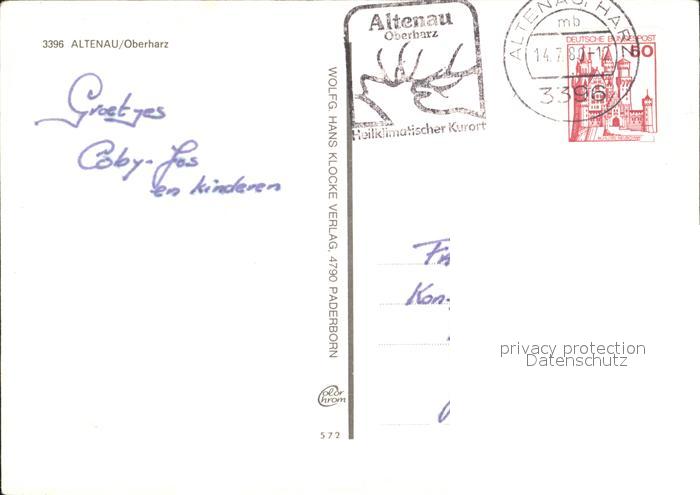 3396 ALTENAU/Oberharz
Groetjes
Coby-Jos
en kinderen
WOLFG. HANS KLOCKE VERLAG, 4790 PADERBORN
Color
Chrom
572
Altenau
Oberharz
Heilklimatischer Kurort
ALTENAU, HARZ
mb
14.7.80-12
3396
DEUTSCHE BUNDESPOST
60
Kon
privacy protection
Datenschutz